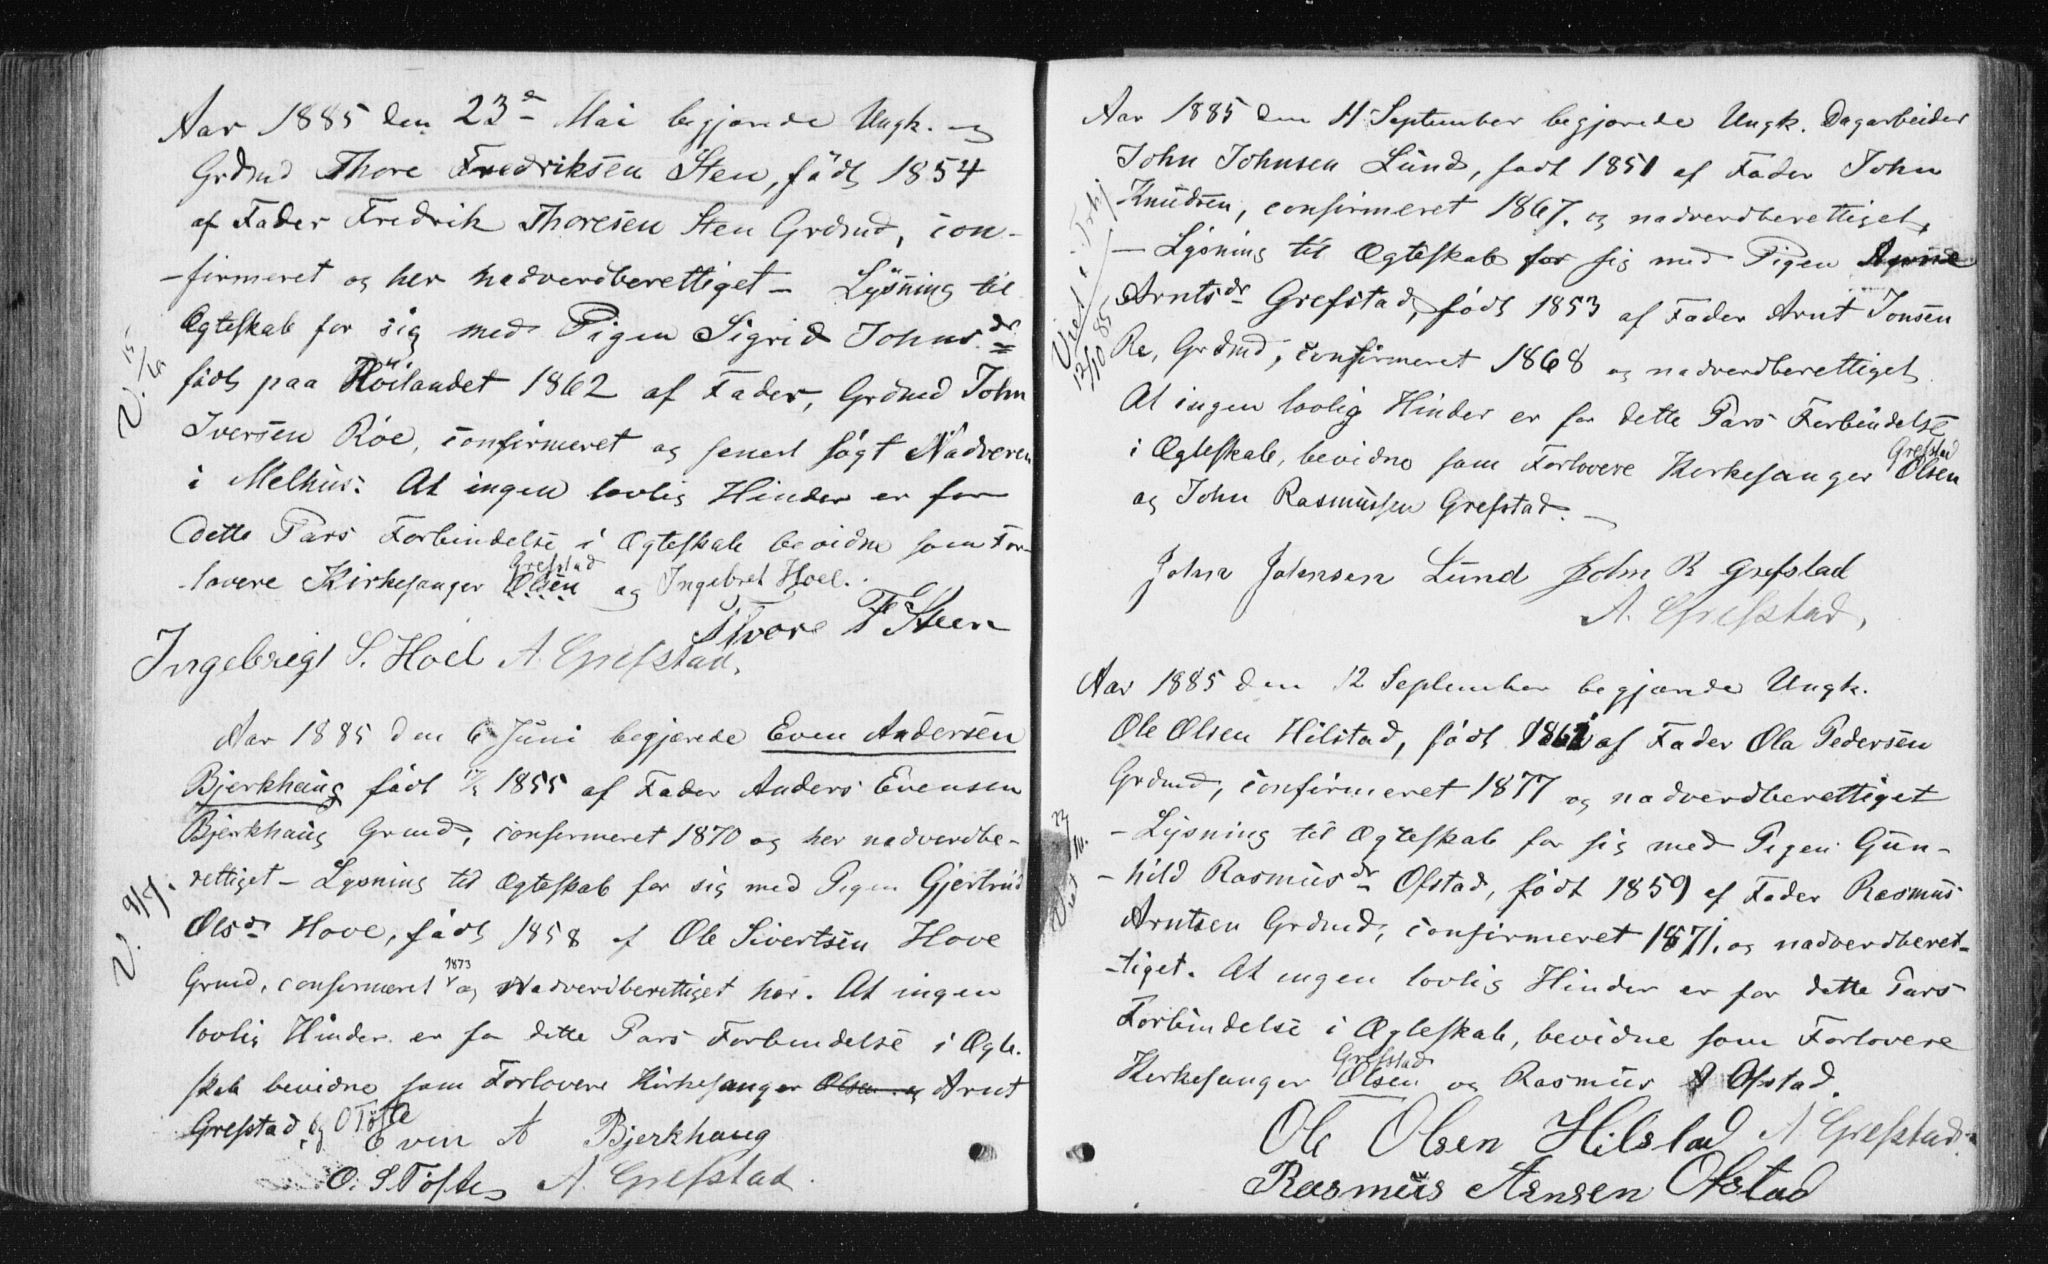 Aar 1885 den 23de Mai begjærede Ungk. og
Grdmd Thore Fredriksen Sten, födt 1854
af Fader Fredrik Thoresen Sten Grdmd, con-
-firmeret og her nadverdberettiget - Lysning til
Ægteskab for sig med Pigen Sigrid Johnsdr
födt paa Höilandet 1862 af Fader, Grdmd John
Iversen Röe, confirmeret og senest sögt Nadveren
i Melhus. At ingen lovlig Hinder er for
dette Pars Forbindelse i Ægteskab bevidne som For-
Grefstad
-lovere Kirkesanger Olsen og Ingebret Hoel.
Thore F Steen
Ingebrigt S. Hoel A. Grefstad.
V. 15/6
Aar 1885 den 6 Juni begjærede Even Andersen
Bjerkhaug födt 1855 af Fader Anders Evensen
Bjerkhaug Grmd, confirmeret 1870 og her nadverdbe-
rettiget - Lysning til Ægteskab for sig med Pigen Gjertrud
Olsdr Hove, födt 1858 af Ole Sivertsen Hove
1873
Grmd, confirmeret og Nadverdberettiget her. At ingen
lovlig Hinder er for dette Pars Forbindelse i Ægte-
skab bevidne som Forlovere Kirkesanger Olsen og Arnt
Grefstad og O Töfte
Even A Bjerkhaug
O. S. Töfte A. Grefstad.
V. 9/7.
Aar 1885 den 11 September begjærede Ungk. Dagarbeider
John Johnsen Lund, födt 1851 af Fader John
Knudsen, confirmeret 1867. og nadverdberettiget,
- Lysning til Ægteskab for sig med Pigen
Arntsdr Grefstad, födt 1853 af Fader Arnt Jonsen
Re, Grdmd, confirmeret 1868 og nadverdberettiget
At ingen lovlig Hinder er for dette Pars Forbindelse
i Ægteskab, bevidne som Forlovere Kirkesanger Grefstad Olsen
og John Rasmussen Grefstad. -
John Johnsen Lund John R Grefstad
A. Grefstad,
Viet i
12/10 85
Aar 1885 den 12 September begjærede Ungk.
Ole Olsen Hilstad, födt 1862 af Fader Ola Pedersen
Grdmd, confirmeret 1877 og nadverdberettiget
- Lysning til Ægteskab for sig med Pigen Gun-
-hild Rasmusdr Ofstad, födt 1859 af Fader Rasmus
Arntsen Grdmd, confirmeret 1871. og nadverdberet-
-tiget. At ingen lovlig Hinder er for dette Pars
Forbindelse i Ægteskab, bevidne som Forlovere
Grefstad
Kirkesanger Olsen og Rasmus A Ofstad.
Ole Olsen Hilstad A Grefstad.
Rasmus Arnsen Ofstad
Viet